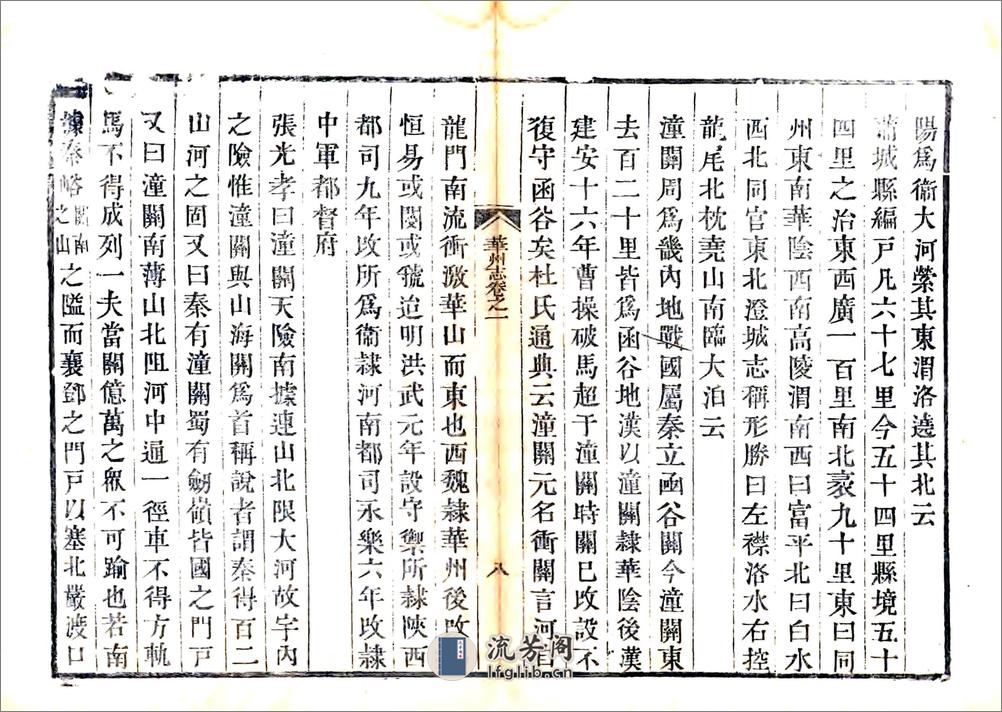 陽爲衞大河縈其東渭洛遶其北云
蒲城縣編戸凡六十七里今五十四里縣境五十
四里之治東西廣一百里南北袤九十里東曰同
州東南華陰西南高陵渭南西曰富平北曰白水
西北同官東北澄城志稱形勝曰左襟洛水右控
龍尾北枕堯山南臨大泊云
潼關周爲畿內地戰國屬秦立函谷關今潼關東
去百二十里皆爲函谷地漢以潼關隷華陰後漢
建安十六年曹操破馬超于潼關時關已改設不
復守函谷矣杜氏通典云潼關元名衝關言河自
華州志卷之一
八
龍門南流衝激華山而東也西魏隷華州後改
恒易或閿或虢迨明洪武元年設守禦所隷陝西
都司九年改所爲衞隷河南都司永樂六年改隷
中軍都督府
張光孝曰潼關天險南據連山北限大河故宇內
之險惟潼關與山海關爲首稱說者謂秦得百二
山河之固又曰秦有潼關蜀有劒嶺皆國之門戸
又曰潼關南薄山北阻河中通一徑車不得方軌
馬不得成列一夫當關億萬之衆不可踰也若南
據秦嶺關南之山之隘而襄鄧之門戸以塞北嚴渡口
流芳阁
lfglib.cn